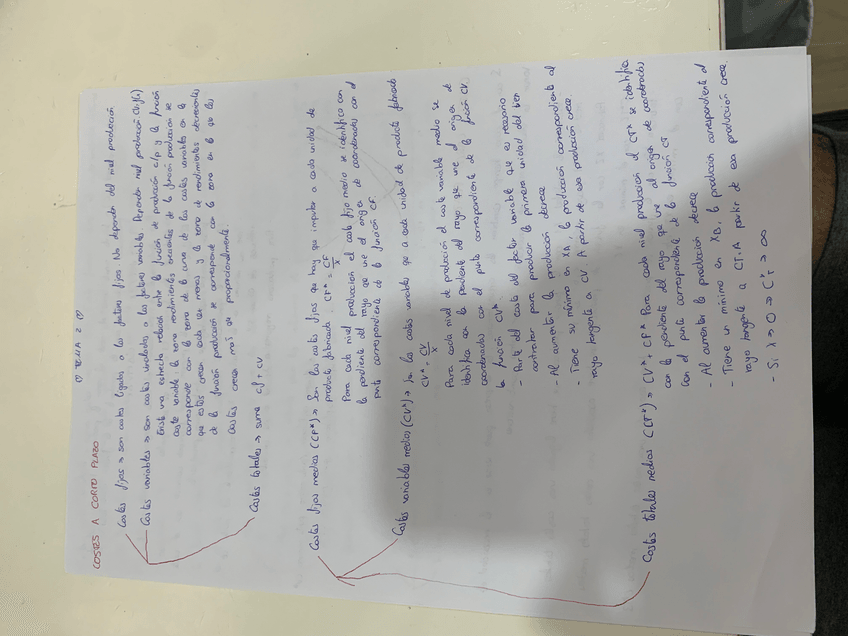 ① TEMA 2 ①
COSTES A CORTO PLAZO
Costes fijos => son costes ligados a los factores fijos No dependen del nivel producción
Costes variables => son costes vinculados a los factores variables. Dependen nivel producción CV=f(x)
Existe una estrecha relación entre la función de producción c/p y la función
coste variable la zona rendimientos crecientes de la función producción se
corresponde con la zona de la curva de los costes variables en la
que estos crecen cada vez menos y la zona de rendimientos decrecientes
de la función producción se corresponde con la zona en la que los
costes crecen más que proporcionalmente.
Costes totales => suma CF + CV
Costes fijos medios (CF*) => Son los costes fijos que hay que imputar a cada unidad de
producto fabricada. CF* = CF/X
Para cada nivel producción el coste fijo medio se identifica con
la pendiente del rayo que une el origen de coordenadas con el
punto correspondiente de la función CF.
Costes variables medios (CV*) => los costes variables que a cada unidad de producto fabricado
CV* = CV/X
Para cada nivel de producción el coste variable medio se
identifica con la pendiente del rayo que une el origen de
coordenadas con el punto correspondiente de la función CV.
la función CV*
- Parte del coste del factor variable que es necesario
contratar para producir la primera unidad del bien
- Al aumentar la producción decrece
- Tiene su mínimo en XA, la producción correspondiente al
rayo tangente a CV A partir de esa producción crece.
Costes totales medios (CT*) => CV* + CF* Para cada nivel producción el CT* se identifica
con la pendiente del rayo que une el origen de coordenadas
con el punto correspondiente de la función CT
- Al aumentar la producción decrece
- Tiene un mínimo en XB, la producción correspondiente al
rayo tangente a CT. A partir de esa producción crece.
- Si x → 0 => C*T → ∞